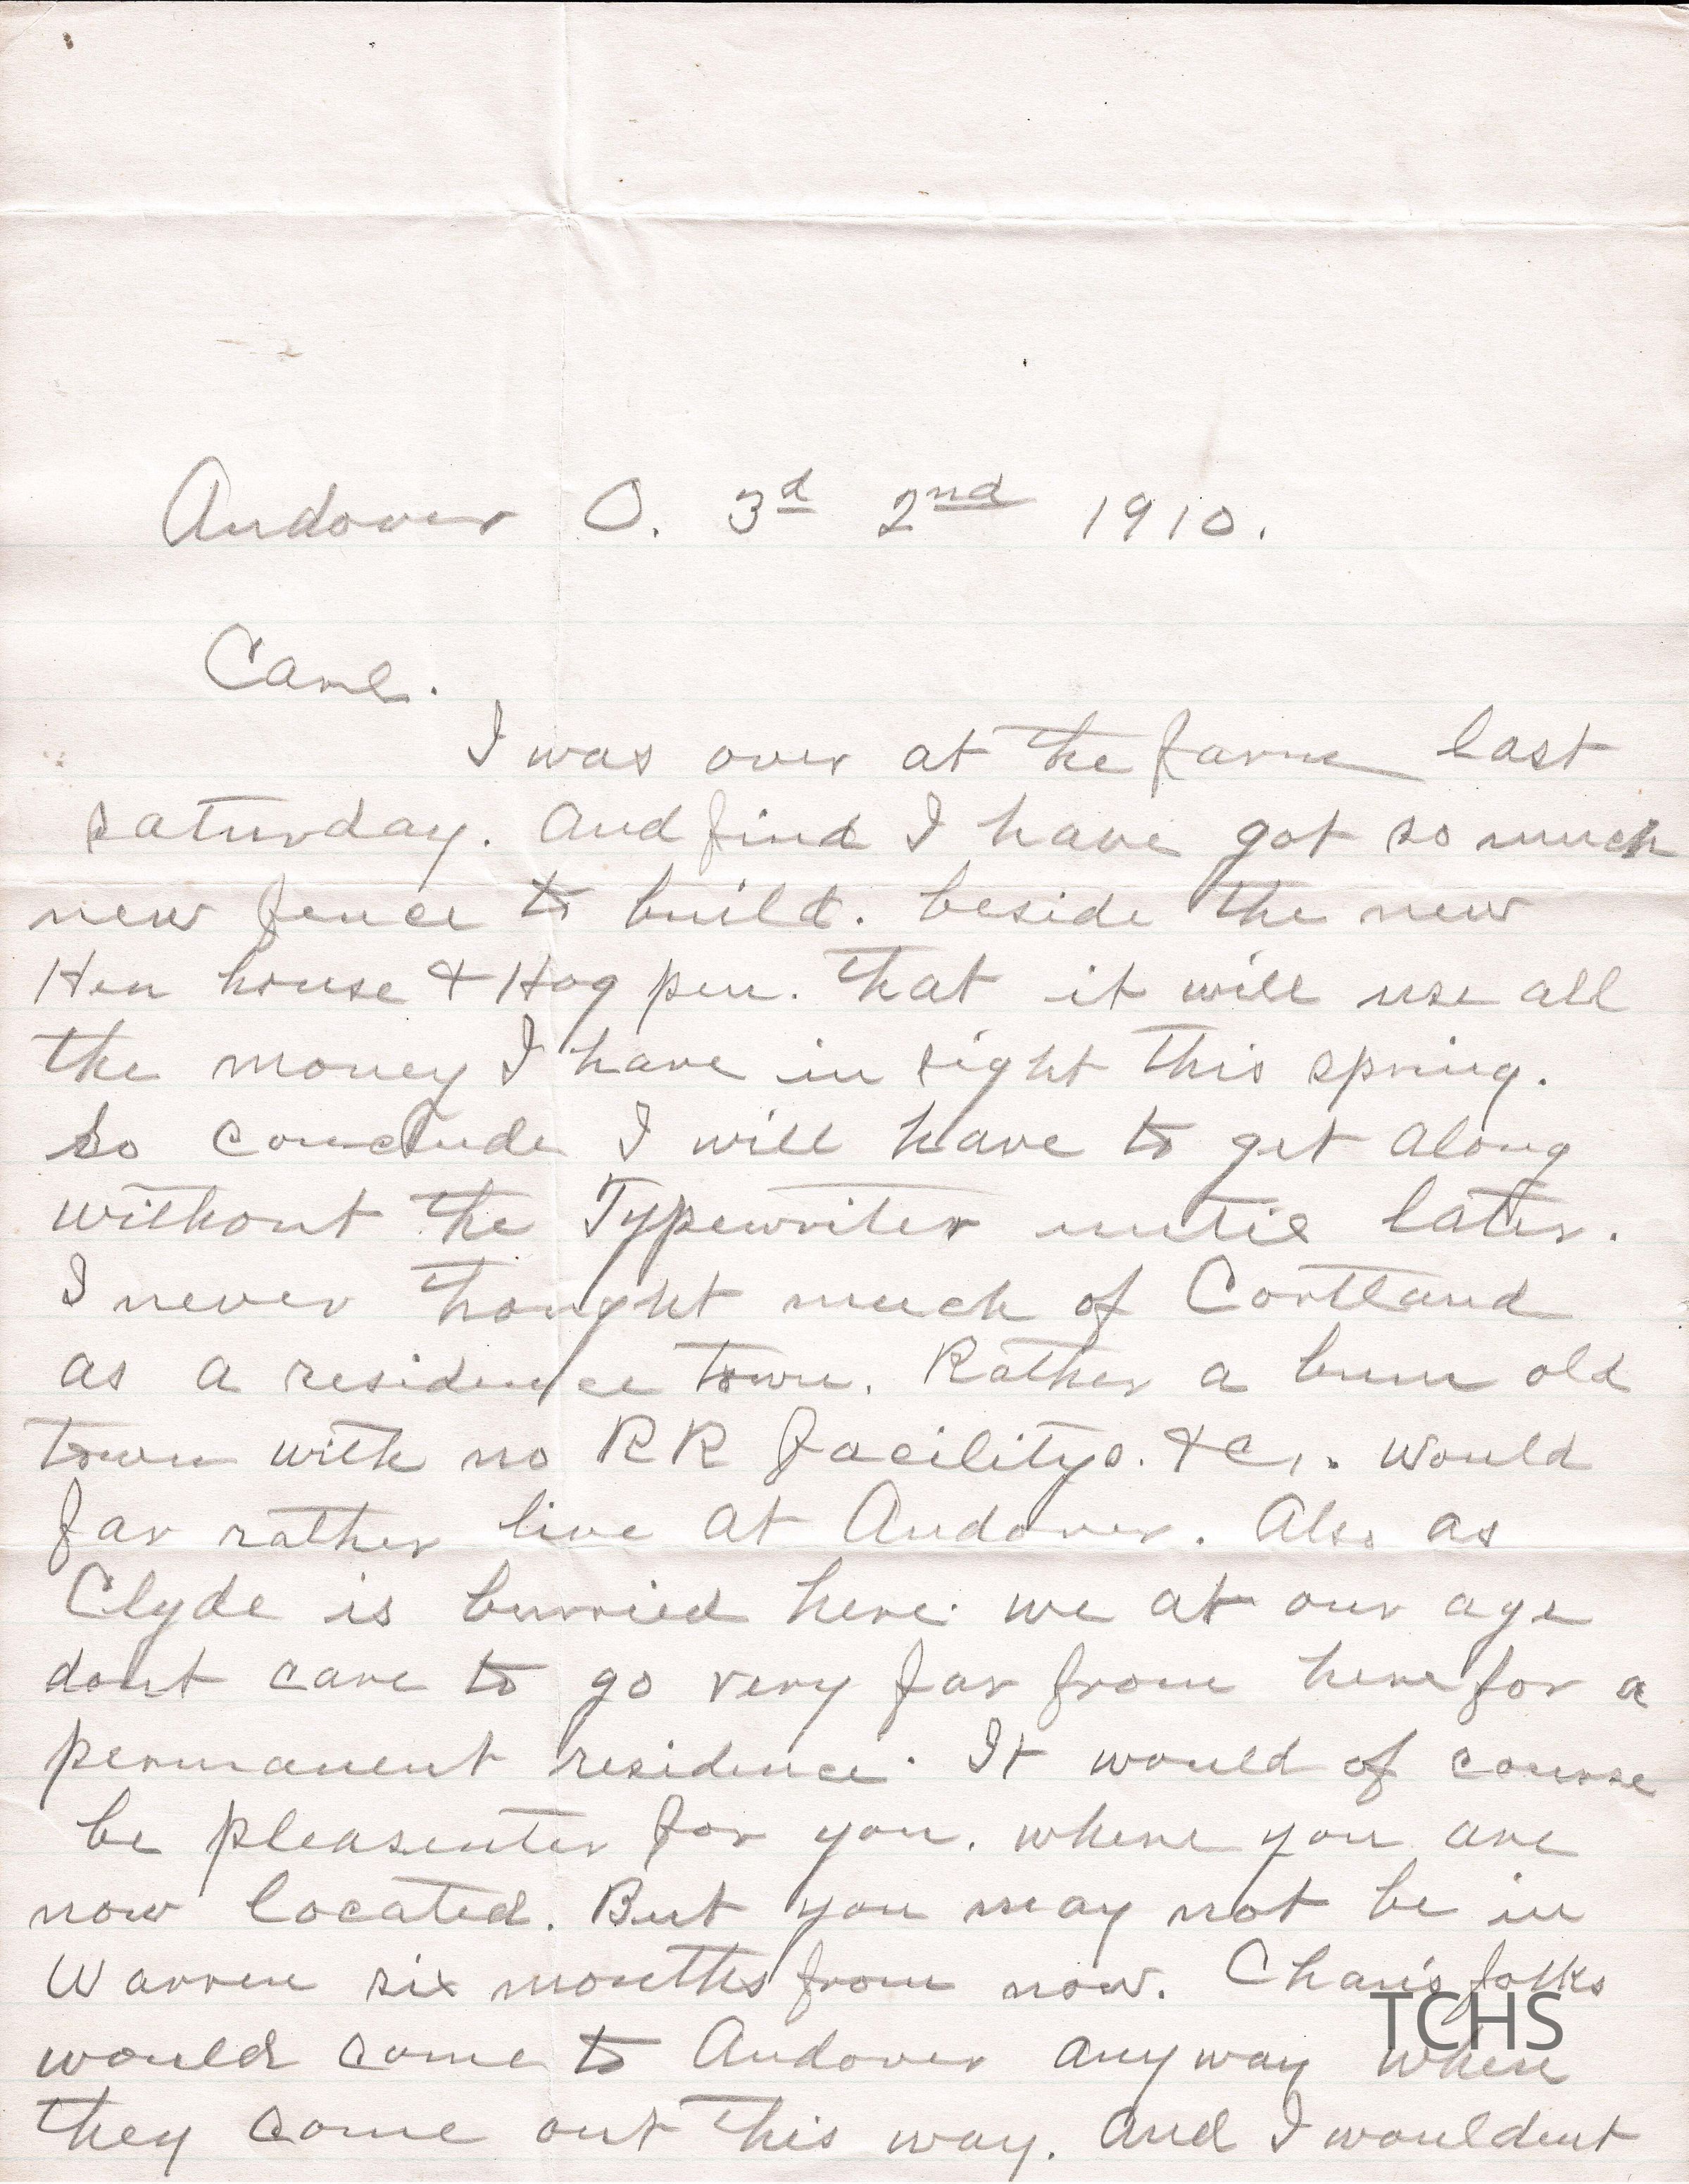 Andover O. 3d 2nd 1910.
Carl.
I was over at the farm last
saturday. And find I have got so much
new fence to build. beside the new
Hen house & Hog pen. that it will use all
the money I have in sight this spring.
So conclude I will have to get along
without the Typewriter until later.
I never thought much of Cortland
as a residence town. Rather a bum old
town with no RR facilitys. &c,. would
far rather live at Andover. Also as
Clyde is burried here. we at our age
dont care to go very far from here for a
permanent residence. It would of course
be pleasenter for you. where you are
now located. But you may not be in
Warren six months from now. Chan's folks
would come to Andover anyway when
they come out this way. And I wouldent
TCHS